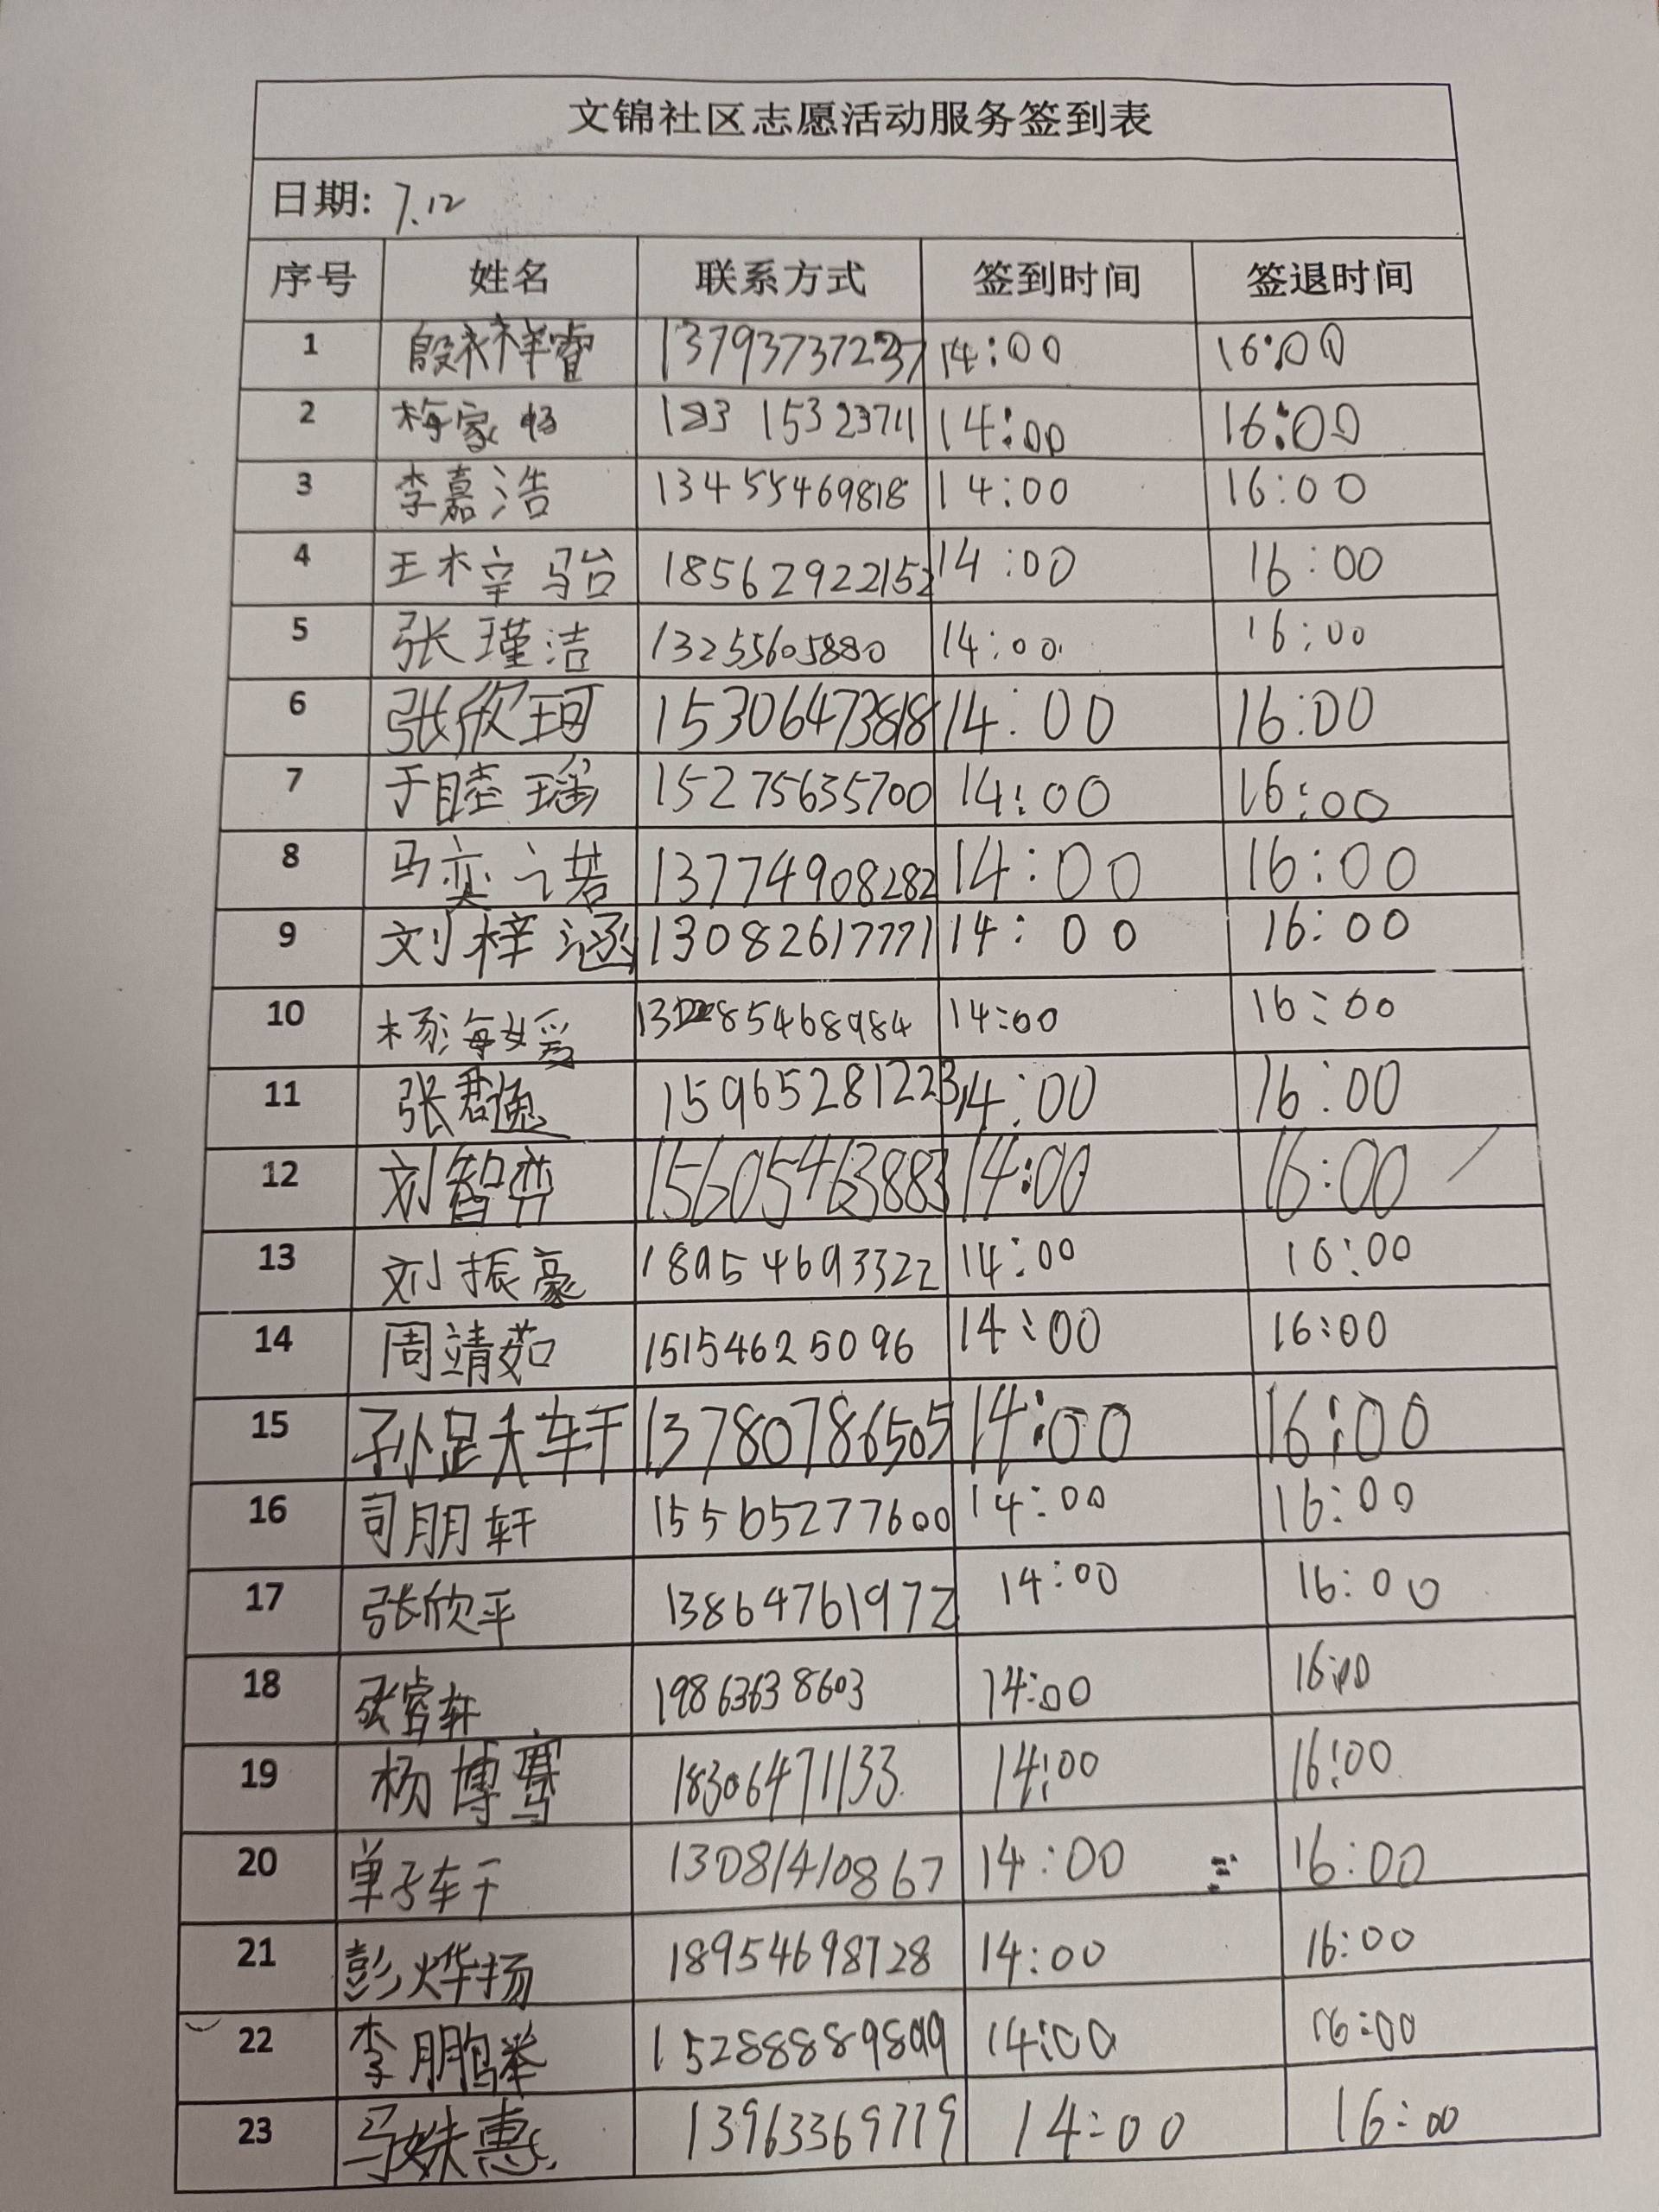 文锦社区志愿活动服务签到表
日期: 7.12
序号 姓名 联系方式 签到时间 签退时间
1 殷梓祥睿 13793737237 14:00 16:00
2 梅家畅 15323711 14:00 16:00
3 李嘉浩 13455469818 14:00 16:00
4 王梓骀 18562922152 14:00 16:00
5 张瑾洁 13255605880 14:00 16:00
6 张欣珂 15306473818 14:00 16:00
7 于睦瑶 15275635700 14:00 16:00
8 马奕诺 13774908282 14:00 16:00
9 刘梓涵 13082617771 14:00 16:00
10 杨海媛 14:00 16:00
11 张君逸 15965281223 14:00 16:00
12 刘智弈 15605463883 14:00 16:00
13 刘振豪 18954693322 14:00 16:00
14 周靖茹 15154625096 14:00 16:00
15 孙轶轩 13780786505 14:00 16:00
16 司朋轩 15565277600 14:00 16:00
17 张欣平 13864761972 14:00 16:00
18 张睿轩 19863638603 14:00 16:00
19 杨博骞 18306471133 14:00 16:00
20 单子轩 13081410867 14:00 16:00
21 彭烨扬 18954698728 14:00 16:00
22 李鹏举 15288889899 14:00 16:00
23 马姝惠 13963369779 14:00 16:00